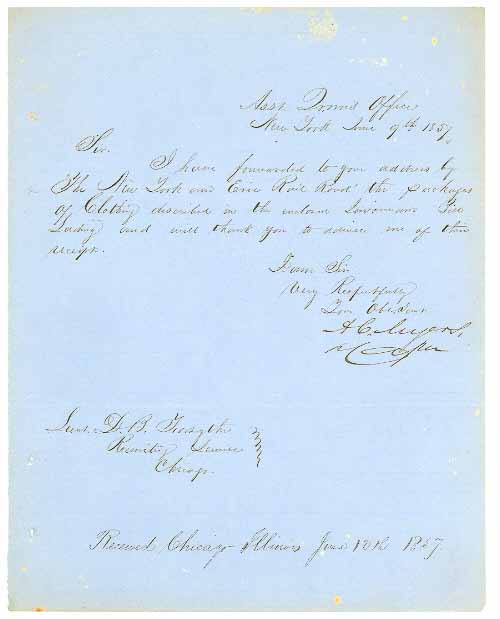 Asst. Qrmrs Office
New York June 9th 1857
Sir.
I have forwarded to your address by
The New York and Erie Rail Road the packages
of Clothing described in the inclosed
Lading and will thank you to advise me of their
receipt.
I am Sir
Very Respectfully
You Obt Servt
A. C. Myers
Lieut. D. B.
Recruiting Service
Chicago.
Received Chicago Illinois June 12th 1857